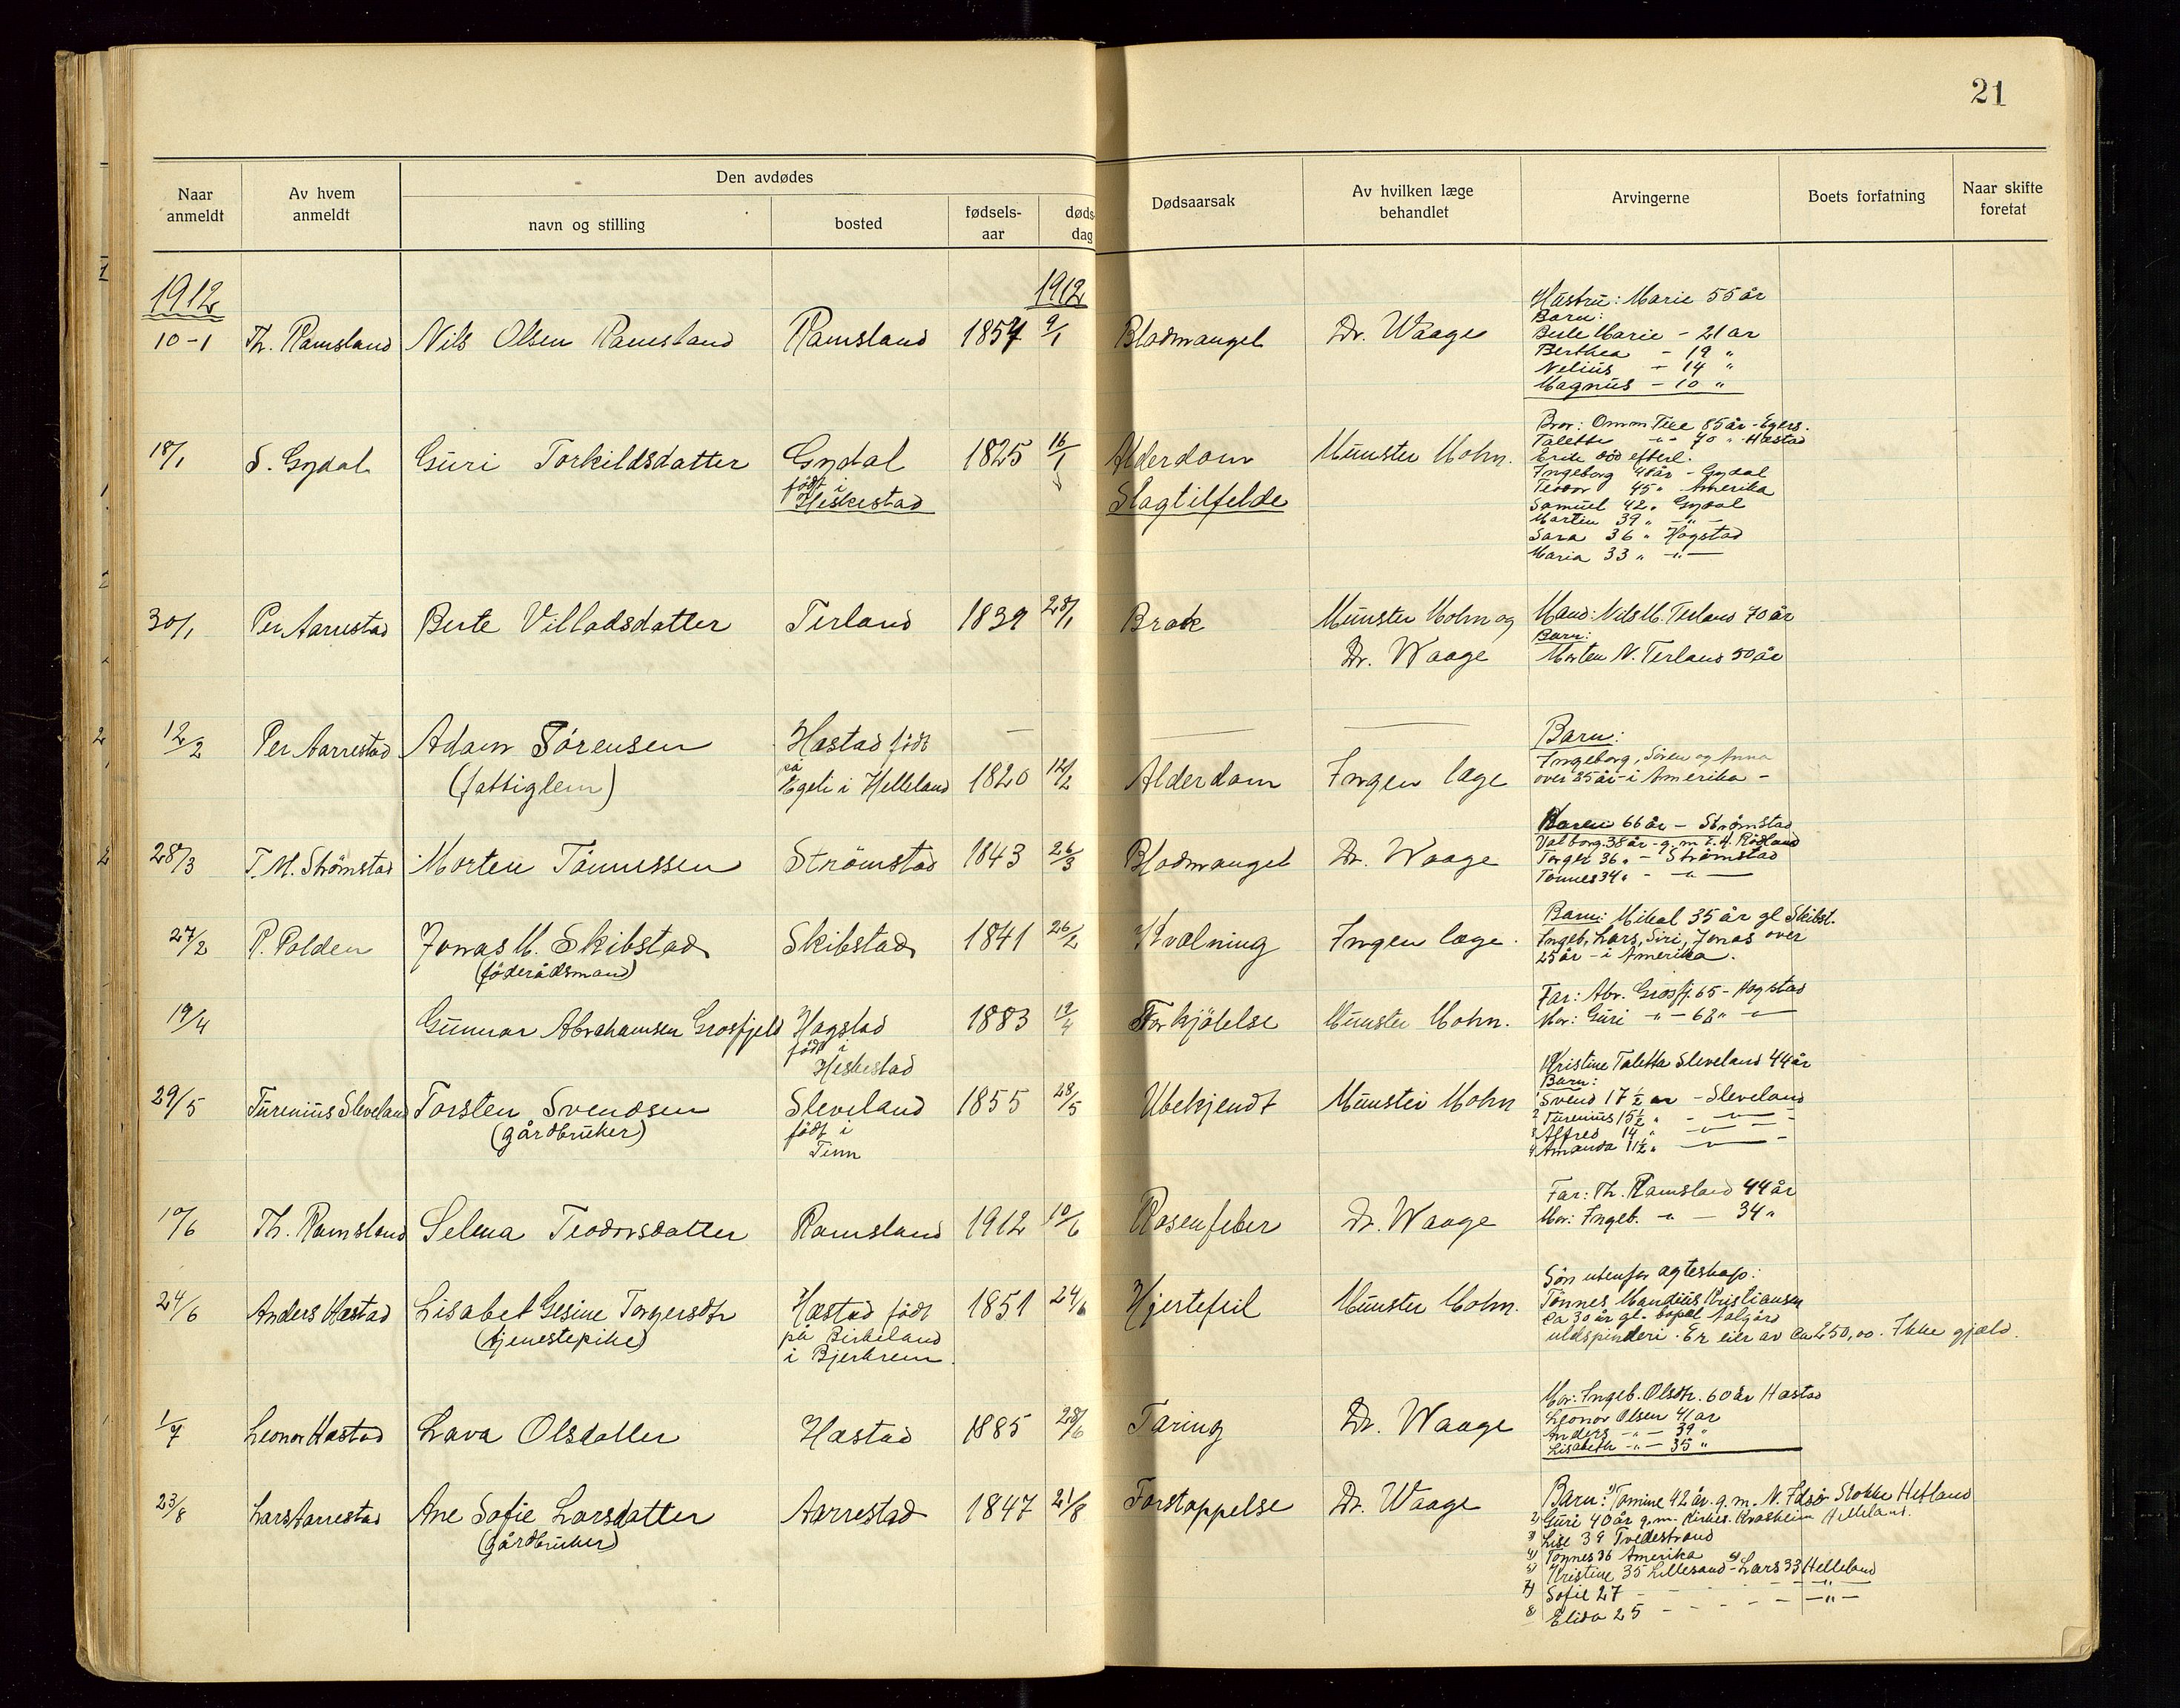 21
Naar anmeldt
Av hvem anmeldt
Den avdødes
navn og stilling
bosted
fødsels-aar
døds dag
Dødsaarsak
Av hvilken læge behandlet
Arvingerne
Boets forfatning
Naar skifte foretat
1912
1912
10-1 Th. Ramsland Nils Olsen Ramsland Ramsland 1857 9/1 Blodmangel Dr. Waage
Hustru: Marie 55 år
Barn:
Berte Marie - 21 år
Berthea - 19 "
Nelius - 14 "
Magnus - 10 "
18/1 S. Gydal Guri Torkildsdatter Gydal 1825 16/1 Alderdom Munster Mohn.
født i
Heskestad
Slagtilfelde
Bror: Omm Tere 85 år - Egers.
Talette -"- 70 " Hæstad
Erik død efterl.
Ingeborg 48 år - Gydal
Teodor 45 " Amerika
Samuel 42 " Gydal
Martin 39 " -"-
Sara 36 " Hogstad
Maria 33 " -"-
30/1 Per Aarrestad Berte Villadsdatter Terland 1839 28/1 Brok Munster Mohn og
Dr. Waage
Mand: Nils M. Terland 70 år
Barn:
Morten N. Terland 50 år
12/2 Per Aarrestad Adam Sørensen Hæstad født
(fattiglem)
på
Egeli i Helleland 1820 12/2 Alderdom Ingen læge
Barn:
Ingeborg, Søren og Anna
over 35 år - i Amerika -
28/3 T. M. Strømstad Morten Tønnessen Strømstad 1843 26/3 Blodmangel Dr. Waage
Karen 66 år - Strømstad
Valborg 38 år - g. m. T. H. Rødland
Torger 36 " - Strømstad
Tønnes 34 " - " -
27/2 P. Polden Jonas M. Skibstad Skibstad 1841 26/2 Kvælning Ingen læge.
(føderådsmand)
Barn: Mikal 35 år gl Skibst.
Ingeb, Lars, Siri, Jonas over
25 år - i Amerika.
19/4 Gunnar Abrahamsen Grosfjeld Hogstad 1883 19/4 Forkjølelse Munster Mohn.
født i
Heskestad
Far: Abr. Grosfj. 65 - Hogstad
Mor: Guri " - 68 " - " -
29/5 Turenius Sleveland Torsten Svendsen Sleveland 1855 28/5 Ubekjendt Munster Mohn
(gårdbruker)
født i
Tinn
Kristine Taletta Sleveland 44 år
Barn:
1 Svend 17 ½ år - Sleveland
2 Turenius 15 ½ " - " -
3 Alfred 14 " - " -
4 Amanda 11 ½ " - " -
10/6 Th. Ramsland Selma Teodorsdatter Ramsland 1912 10/6 Rosenfeber Dr. Waage
Far: Th. Ramsland 44 år
Mor: Ingeb. -"- 34 "
24/6 Anders Hæstad Lisabet Gesine Torgersdtr Hæstad født 1851 24/6 Hjertefeil Munster Mohn.
(tjenestepike)
på Birkeland
i Bjerkrem.
Søn utenfor ægteskap:
Tønnes Mandius Kristiansen
ca 30 år gl. bopæl Ålgård
uldspinderi. Er eier av ca 250,00. Ikke gjæld.
1/7 Leonor Hæstad Lava Olsdatter Hæstad 1885 28/6 Tæring Dr. Waage
Mor: Ingeb. Olsdtr. 60 år Hæstad
Leonor Olsen 41 år
Anders -"- 39 "
Lisabeth -"- 35 "
23/8 Lars Aarrestad Ane Sofie Larsdatter Aarrestad 1847 21/8 Forstoppelse Dr. Waage
(gårdbruker)
Barn: 1) Tomine 42 år g. m. N. Stokke Hetland
2) Guri 40 år g. m. Helleland.
3) Lise 39 Tvedestrand
4) Tønnes 36 Amerika
5) Kristine 35 Lillesand - 6) Lars 33 Helleland
7) Sofie 27 - - - - - -"-
8) Elida 25 - - - - - -"-